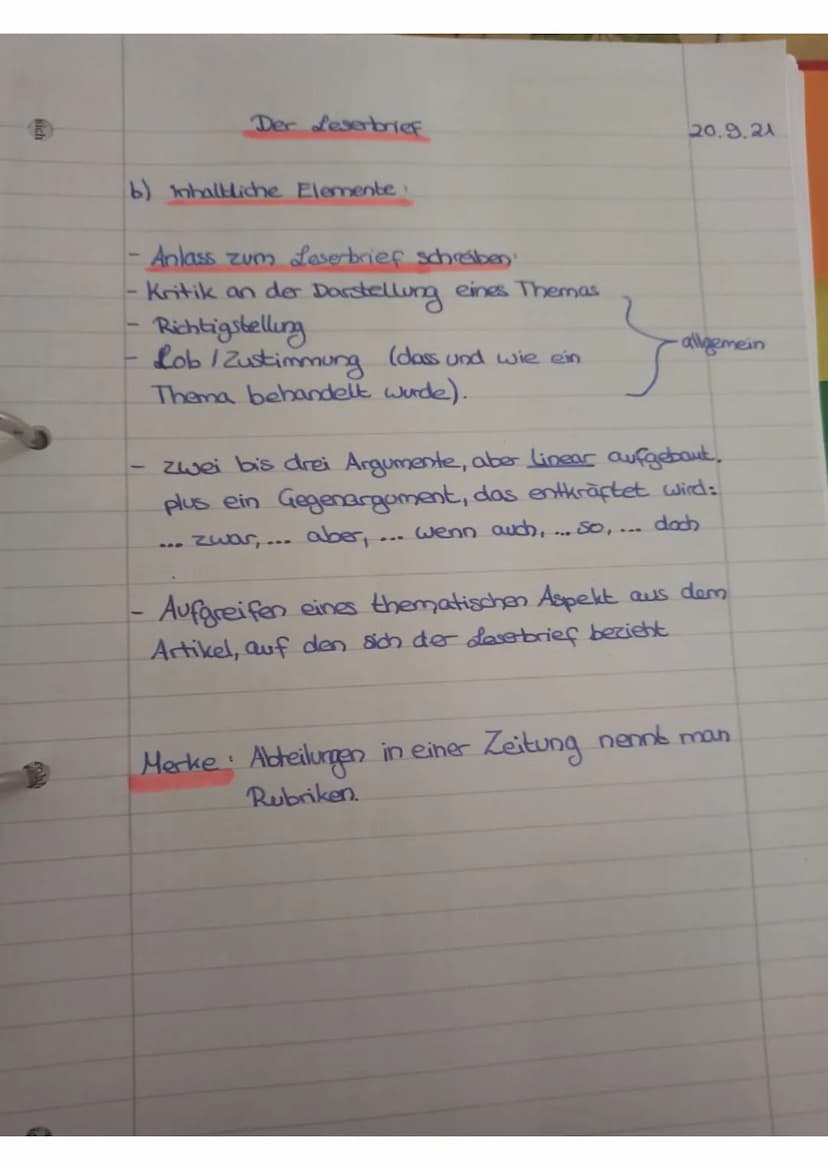 Der Leserbrief
20.9.21
b) Inhaltliche Elemente:
- Anlass zum Leserbrief schreiben:
- Kritik an der Darstellung eines Themas
- Richtigstellung
- Lob / Zustimmung (dass und wie ein
Thema behandelt wurde).
allgemein
- zwei bis drei Argumente, aber linear aufgebaut.
plus ein Gegenargument, das entkräftet wird:
... zwar, ... aber, ... wenn auch, ... so, ... doch
- Aufgreifen eines thematischen Aspekt aus dem
Artikel, auf den sich der Leserbrief bezieht
Merke: Abteilungen in einer Zeitung nennt man
Rubriken.